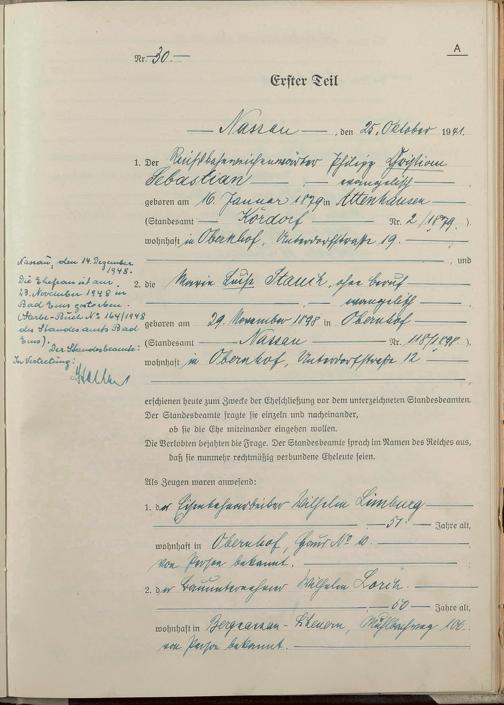 A
Nr. 30.
Erster Teil
Nassau, den 25. Oktober 1941.
1. Der Philipp Christian
Sebastian evangelisch
geboren am 16. Januar 1879 in Attenhausen
(Standesamt Kördorf Nr. 2/1879.)
wohnhaft in Obernhof, Unterdorfstraße 19.
, und
2. die Marie Luise Stauch, ohne Beruf
evangelisch
geboren am 29. November 1898 in Obernhof
(Standesamt Nassau Nr. 118/1898.)
wohnhaft in Obernhof, Unterdorfstraße 12
Nassau, den 14. Dezember
1948.
Die Ehefrau ist am
23. November 1948 in
Bad Ems gestorben.
(Sterbe-Buch No 164/1948
des Standesamts Bad
Ems).
Der Standesbeamte:
In Vertretung:
erschienen heute zum Zwecke der Eheschließung vor dem unterzeichneten Standesbeamten.
Der Standesbeamte fragte sie einzeln und nacheinander,
ob sie die Ehe miteinander eingehen wollen.
Die Verlobten bejahten die Frage. Der Standesbeamte sprach im Namen des Reiches aus,
daß sie nunmehr rechtmäßig verbundene Eheleute seien.
Als Zeugen waren anwesend:
1. der Wilhelm Limburg
51 Jahre alt,
wohnhaft in Obernhof, Haus No 10.
von Person bekannt.
2. der Bauunternehmer Wilhelm Lorch
50 Jahre alt,
wohnhaft in Bergnassau-Scheuern, Mühlbachweg 100.
von Person bekannt.